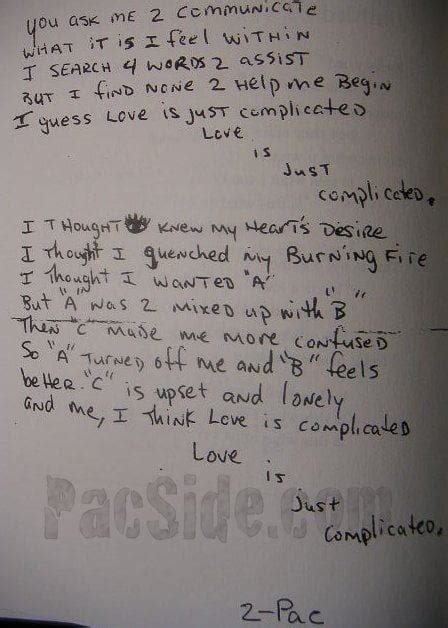 you ask me 2 communicate
what it is I feel within
I search 4 words 2 assist
But I find none 2 help me begin
I guess Love is just complicated
Love
is
Just
complicated.
I thought 👁 knew my Heart's Desire
I thought I quenched my Burning Fire
I thought I wanted "A"
But "A" was 2 mixed up with "B"
Then "C" made me more confused
So "A" turned off me and "B" feels
better. "C" is upset and lonely
and me, I think Love is complicated
Love
is
just
complicated.
PacSide.com
2-Pac